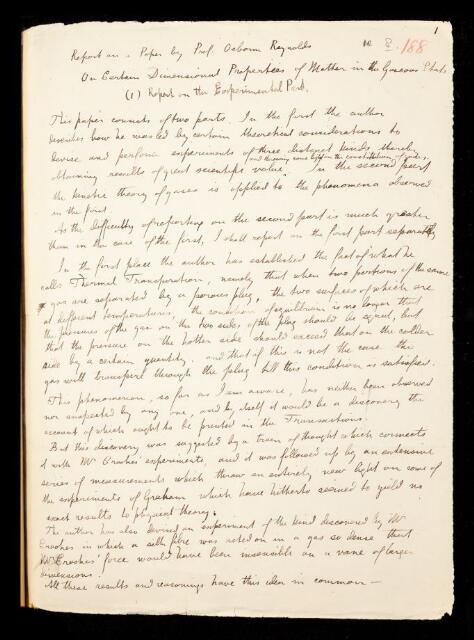 1
188
Report on a Paper by Prof. Osborne Reynolds
On Certain Dimensional Properties of Matter in the Gaseous State
(1) Report on the Experimental Part.
This paper consists of two parts. In the first the author
describes how he was led by certain theoretical considerations to
devise and perform experiments of three distinct kinds, thereby
obtaining results of great scientific value and throwing some light on the constitution of gases. In the second part
the kinetic theory of gases is applied to the phenomena observed
in the first.
As the difficulty of reporting on the second part is much greater
than in the case of the first, I shall report on the first part separately
In the first place the author has established the fact of what he
calls Thermal Transpiration, namely that when two portions of the same
gas are separated by a porous plug, the two surfaces of which are
at different temperatures, the condition of equilibrium is no longer that
the pressures of the gas on the two sides of the plug should be equal, but
that the pressure on the hotter side should exceed that on the colder
side by a certain quantity. and that if this is not the case the
gas will transpire through the plug till this condition is satisfied.
This phenomenon, so far as I am aware, has neither been observed
nor suspected by any one, and by itself it would be a discovery the
account of which ought to be printed in the Transactions.
But this discovery was suggested by a train of thought which connects
it with Mr Crookes' experiments, and it was followed up by an extensive
series of measurements which throw an entirely new light on some of
the experiments of Graham which have hitherto seemed to yield no
exact results to physical theory.
The author has also devised an experiment of the kind discovered by Mr
Crookes in which a silk fibre was acted on in a gas so dense that
Mr Crookes' force would have been insensible on a vane of larger
dimensions.
All these results and reasonings have this idea in common —